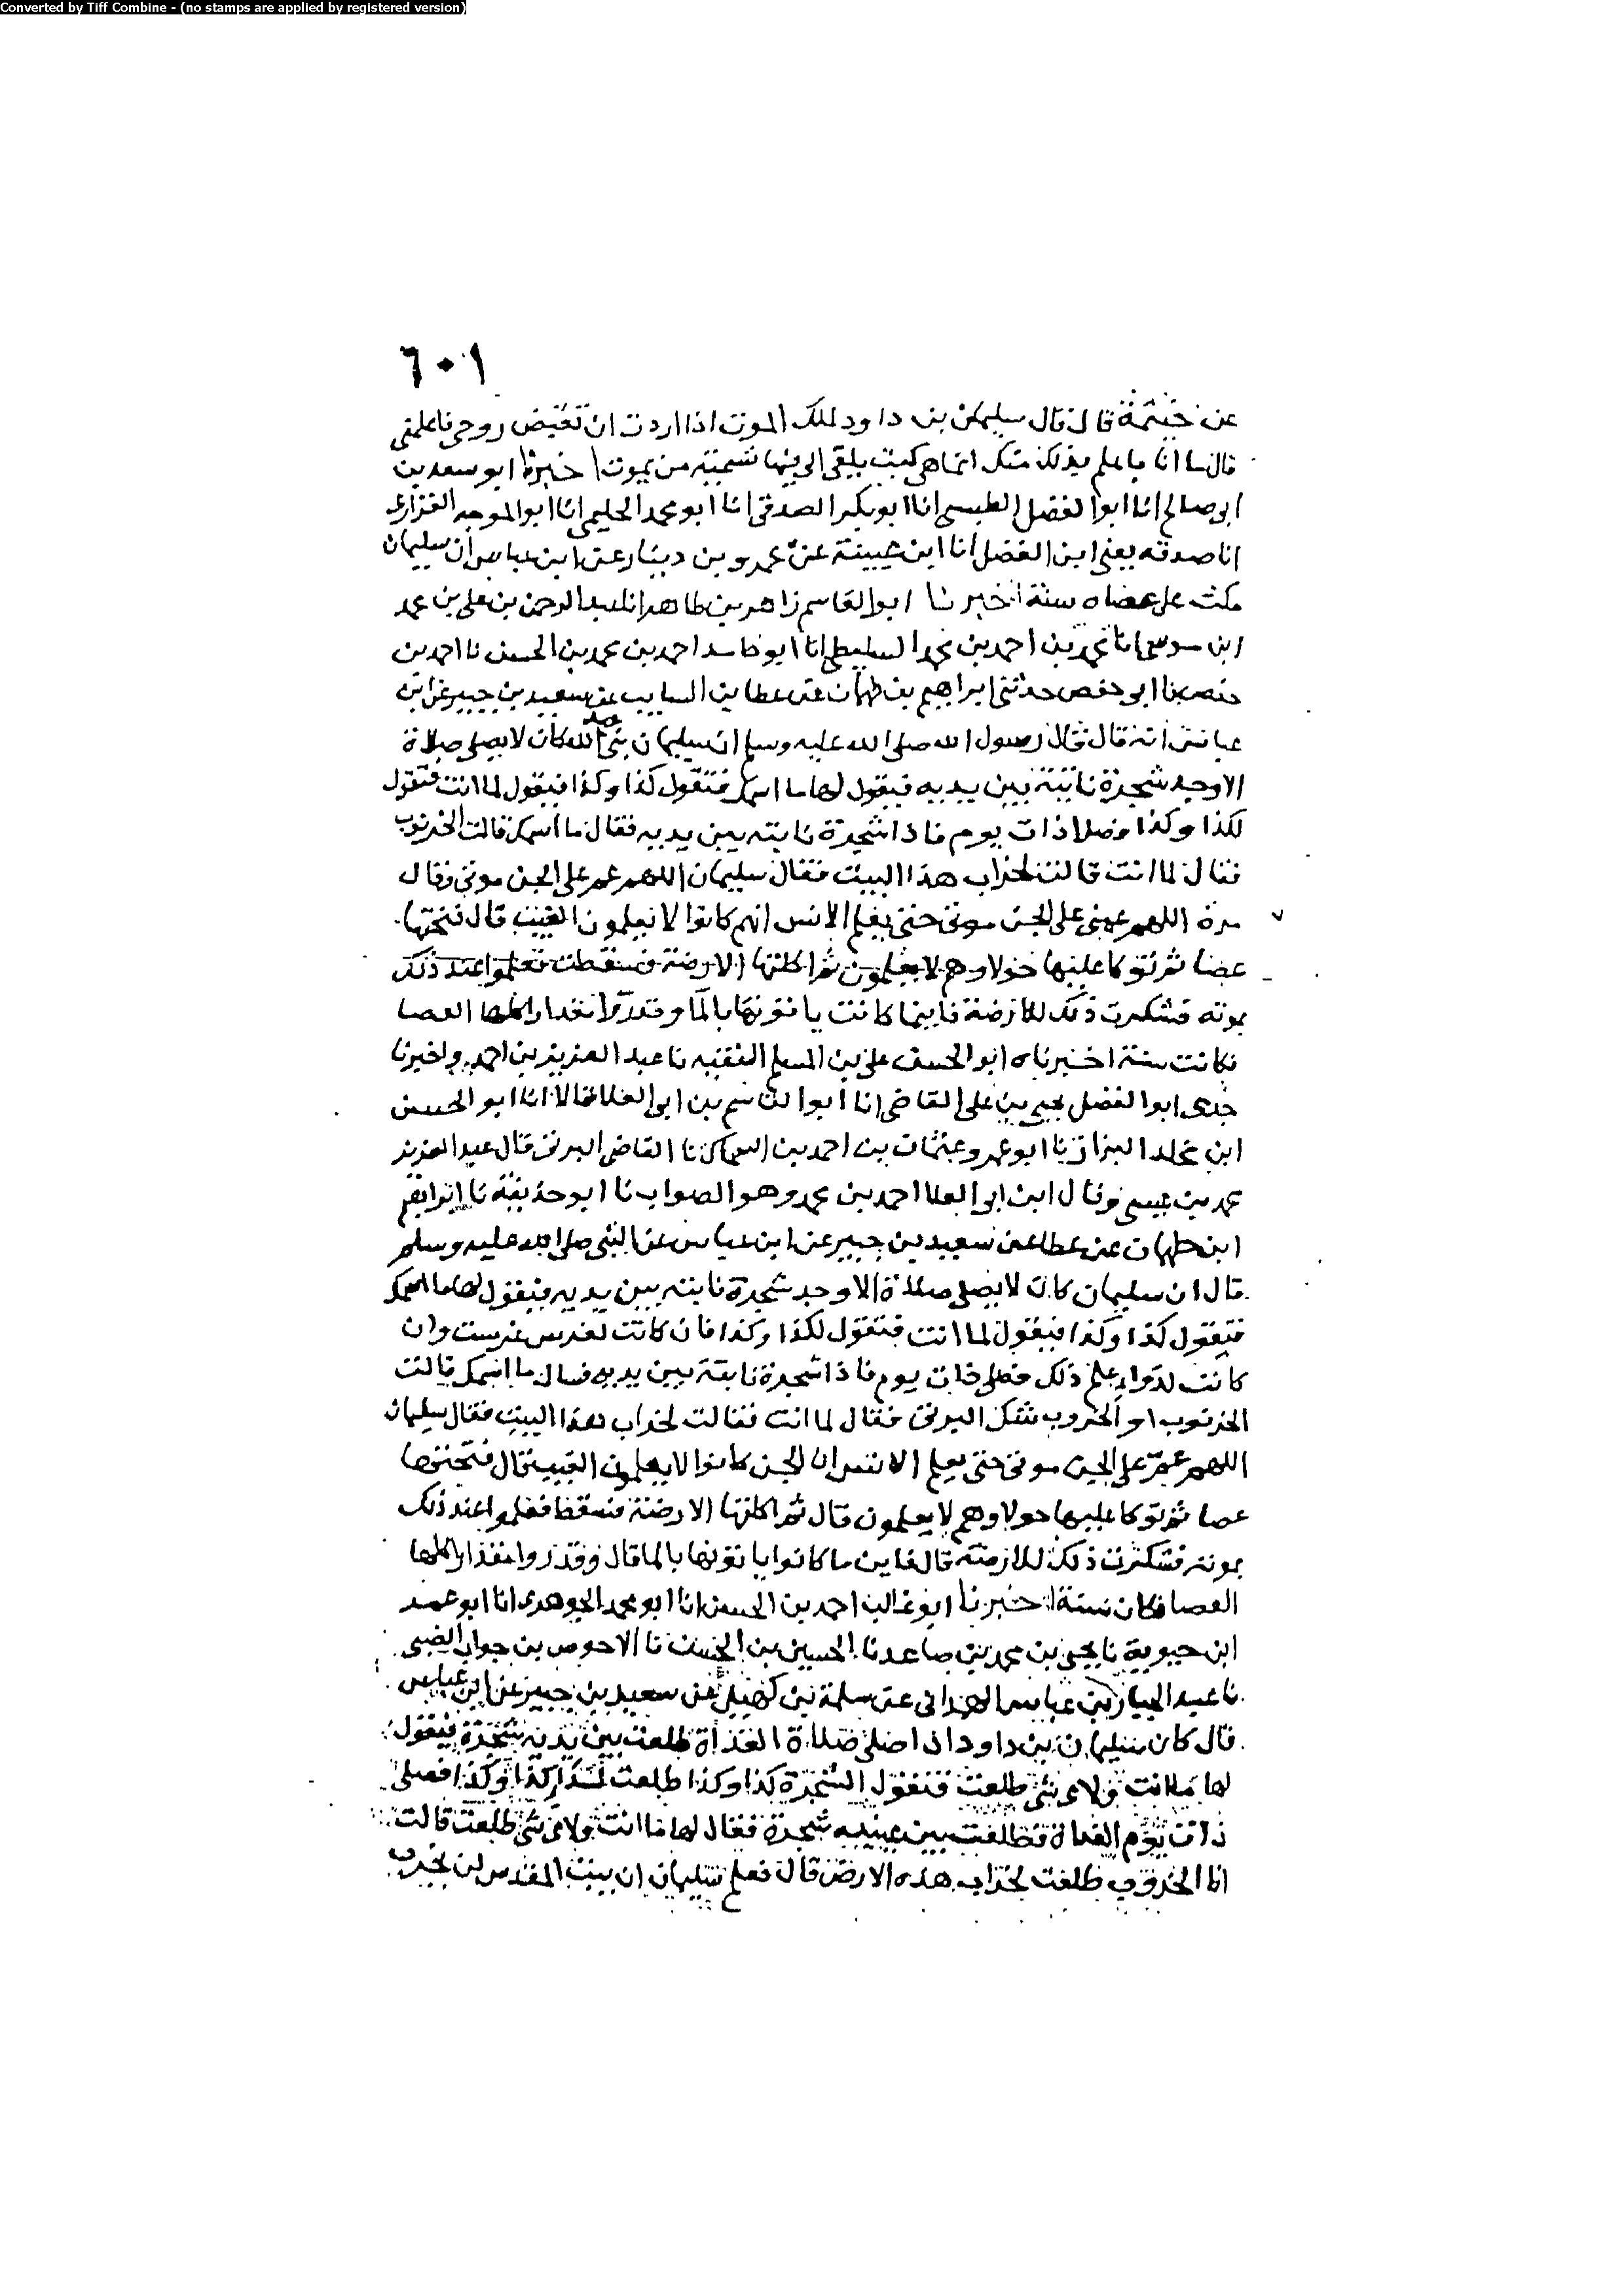 Converted by Tiff Combine - (no stamps are applied by registered version)
٦٠١
عن خيثمة قال قال سليمان بن داود لملك الموت اذا اردت ان تقبض روحي فاعلمني
قال ما انا باعلم بذلك منك انما هي كتب يلقى الي فيها تسمية من يموت اخبرنا ابو سعد بن
ابي صالح انا ابو الفضل الطبسي انا ابو بكر الصدقي انا ابو محمد الحليمي انا ابو الموجه الفزاري
انا صدقه يعني ابن الفضل انا ابن عيينة عن عمرو بن دينار عن ابن عباس ان سليمان
مكث على عصاه سنة اخبرنا ابو القاسم زاهر بن طاهر انا عبد الرحمن بن علي بن محمد
ابن موسى انا محمد بن احمد بن محمد السليطي انا ابو حامد احمد بن محمد بن الحسن نا احمد بن
حفص نا ابي حفص حدثني ابراهيم بن طهمان عن عطا بن السايب عن سعيد بن جبير عن ابن
عباس انه قال قال رسول الله صلى الله عليه وسلم ان سليمان نبي الله كان لا يصلي صلاة
الا وجد شجرة نابتة بين يديه فيقول لها ما اسمك فتقول كذا وكذا فيقول لما انت فتقول
لكذا وكذا فصلا ذات يوم فاذا شجرة نابته بين يديه فقال ما اسمك قالت الخرنوب
فقال لما انت قالت لخراب هذا البيت فقال سليمان اللهم عم على الجن موتي وقال
مرة اللهم عمي على الجن موتي حتى يعلم الانس انهم كانوا لا يعلمون الغيب قال فنحتها
عصا ثم توكا عليها حولا وهم لا يعلمون ثم اكلتها الارضة فسقطت فعلموا عند ذلك
بموته فشكرت ذلك للارضة فاينما كانت ياتونها بالما وقدروا مقدار اكلها العصا
فكانت سنة اخبرناه ابو الحسن علي بن المسلم الفقيه نا عبد العزيز بن احمد واخبرنا
جدي ابو الفضل يحيى بن علي القاضي انا ابو القاسم بن ابي العلا قالا انا ابو الحسن
ابن مخلد البزاز نا ابو عمرو عثمان بن احمد بن السماك نا القاضي البرتي قال عبد العزيز
محمد بن عيسى وقال ابن ابي العلا احمد بن محمد وهو الصواب نا ابو حذيفة نا ابراهيم
ابن طهمان عن عطا عن سعيد بن جبير عن ابن عباس عن النبي صلى الله عليه وسلم
قال ان سليمان كان لا يصلي صلاة الا وجد شجرة نابته بين يديه فيقول لها ما اسمك
فتقول كذا وكذا فيقول لما انت فتقول لكذا وكذا فان كانت لغرس غرست وان
كانت لدواء علم ذلك فصلى ذات يوم فاذا شجرة نابتة بين يديه فسال ما اسمك قالت
الخرنوب او الخروب شك البرتي فقال لما انت فقالت لخراب هذا البيت فقال سليمان
اللهم عم على الجن موتي حتى يعلم الانس ان الجن كانوا لا يعلمون الغيب قال فنحتها
عصا ثم توكا عليها حولا وهم لا يعلمون قال ثم اكلتها الارضة فسقط فعلموا عند ذلك
بموته فشكرت ذلك للارضة قال فاين ما كانوا ياتونها بالما قال وقدروا مقدار اكلها
العصا فكان سنة اخبرنا ابو غالب احمد بن الحسن انا ابو محمد الجوهري انا ابو عمر
ابن حيوية نا يحيى بن محمد بن صاعد نا الحسين بن الحسن نا الاحوص بن جواب الضبي
نا عبد الجبار بن عباس الهمداني عن سلمة بن كهيل عن سعيد بن جبير عن ابن عباس
قال كان سليمان بن داود اذا صلى صلاة الغداة طلعت بين يديه شجرة فيقول
لها ما انت ولاي شي طلعت فتقول الشجرة كذا وكذا طلعت لكذا وكذا فصلى
ذات يوم الغداة فطلعت بين عينيه شجرة فقال لها ما انت ولاي شي طلعت قالت
انا الخروب طلعت لخراب هذه الارض قال فعلم سليمان ان بيت المقدس لن يخرب